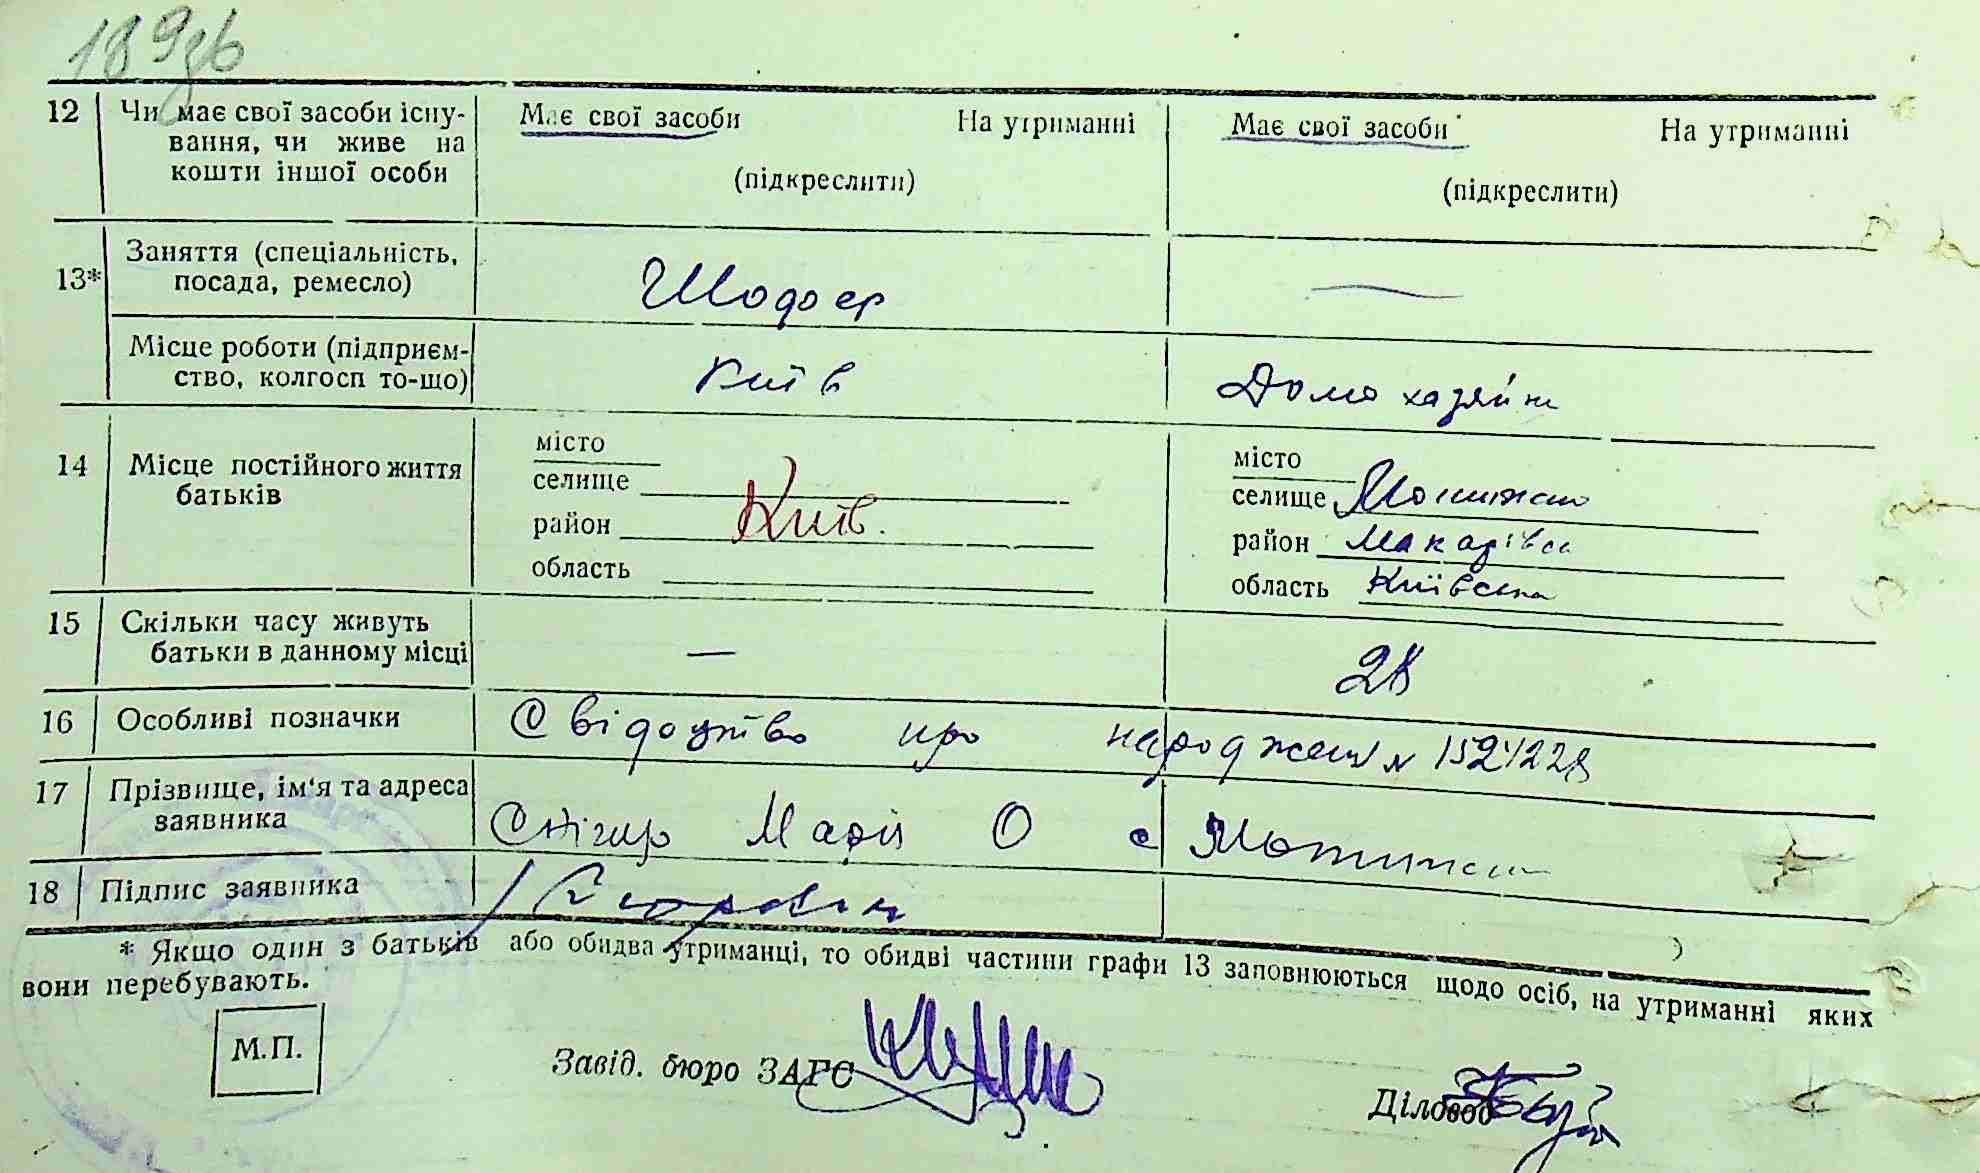 189зв
12 Чи має свої засоби існу- Має свої засоби На утриманні Має свої засоби На утриманні
вання, чи живе на
кошти іншої особи (підкреслити) (підкреслити)
13* Заняття (спеціальність,
посада, ремесло) Шофер —
Місце роботи (підприєм-
ство, колгосп то-що) Київ Домохазяйн
14 Місце постійного життя
батьків
місто
селище
район Київ.
область
місто
селище Мотижин
район Макарівс
область Київська
15 Скільки часу живуть
батьки в данному місці — 28
16 Особливі позначки Свідоцтво про народження № 1521228
17 Прізвище, ім'я та адреса
заявника Снігир Марія О с Мотижин
18 Підпис заявника
* Якщо один з батьків або обидва утриманці, то обидві частини графи 13 заповнюються щодо осіб, на утриманні яких
вони перебувають.
М.П.
Завід. бюро ЗАГС
Діловод